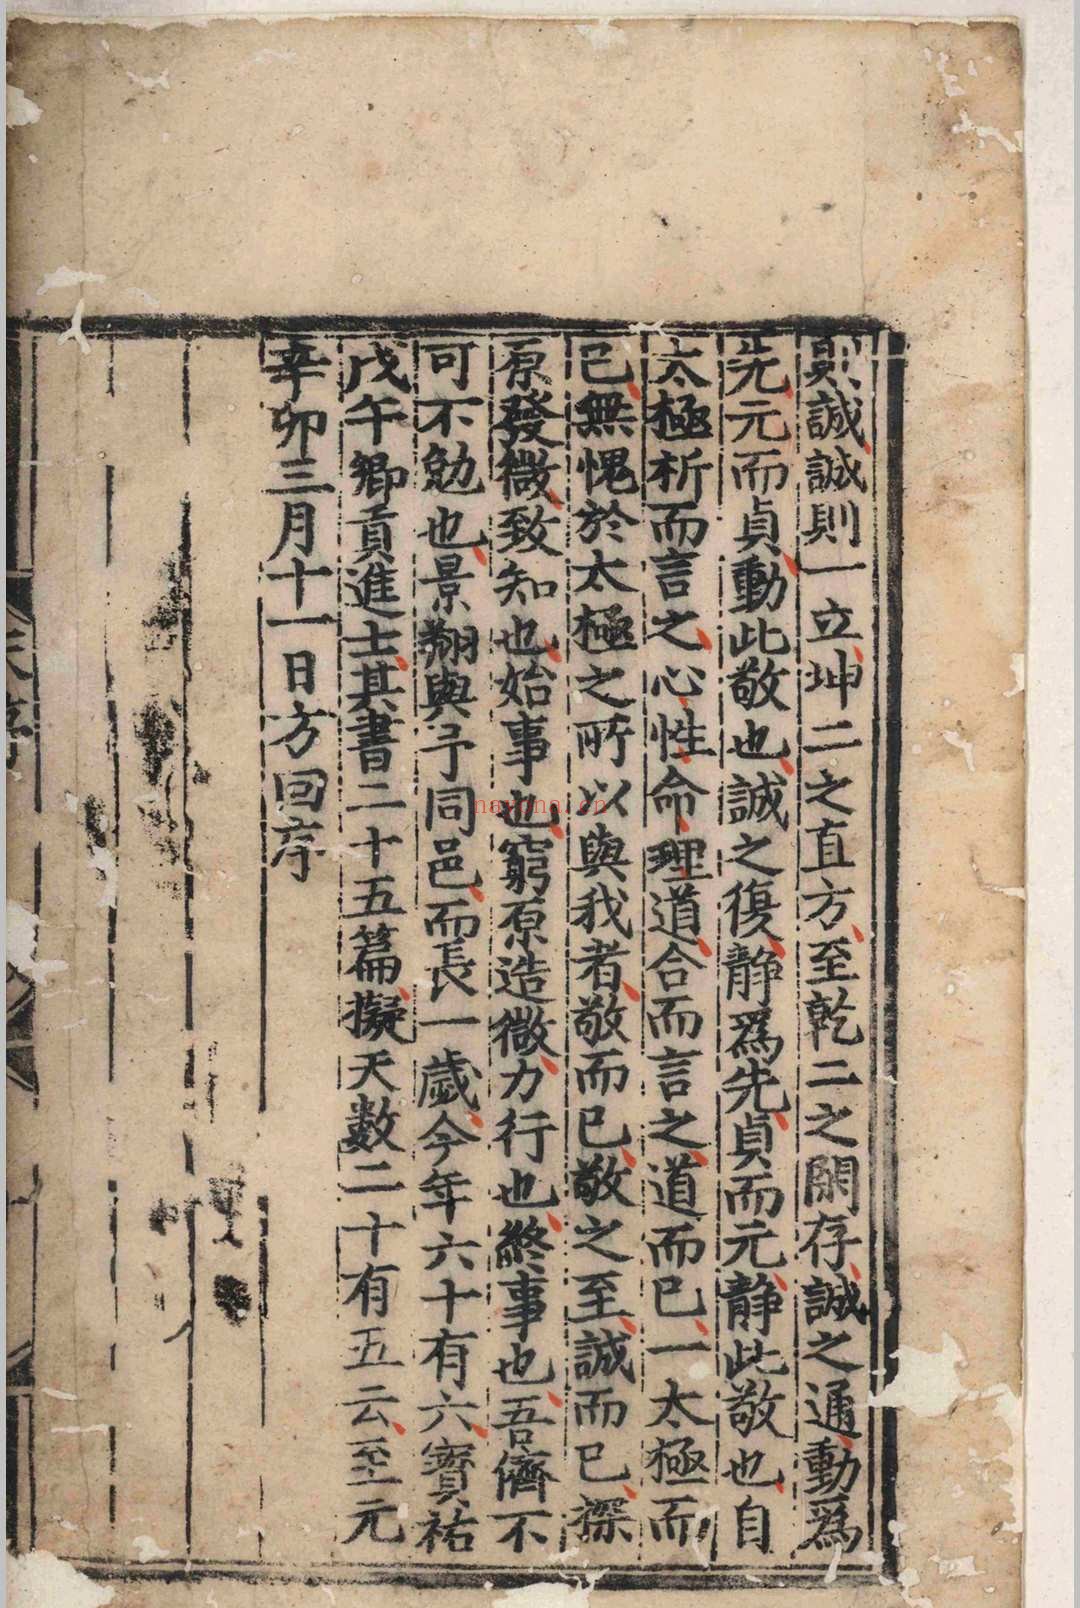 則誠誠則一立坤二之直方至乾二之閑存誠之通動爲
先元而貞動此敬也誠之復静爲先貞而元静此敬也自
太極析而言之心性命理道合而言之道而已一太極而
已無愧於太極之所以與我者敬而已敬之至誠而已探
原發微致知也始事也窮原造微力行也終事也吾儕不
可不勉也景翔與予同邑而長一歲今年六十有六寳祐
戊午鄉貢進士其書二十五篇擬天數二十有五云至元
辛卯三月十一日方回序
nayona.cn